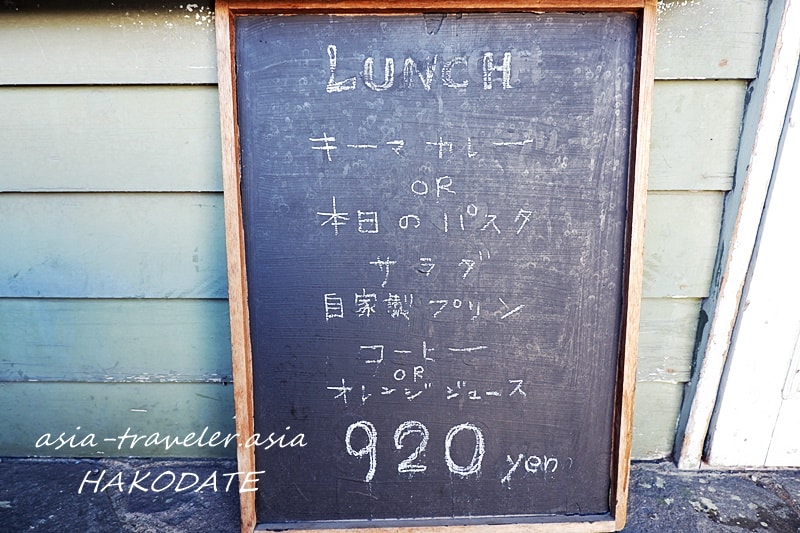 LUNCH
キーマカレー
OR
本日のパスタ
サラダ
自家製プリン
コーヒー
OR
オレンジジュース
920 yen
asia-traveler.asia
HAKODATE